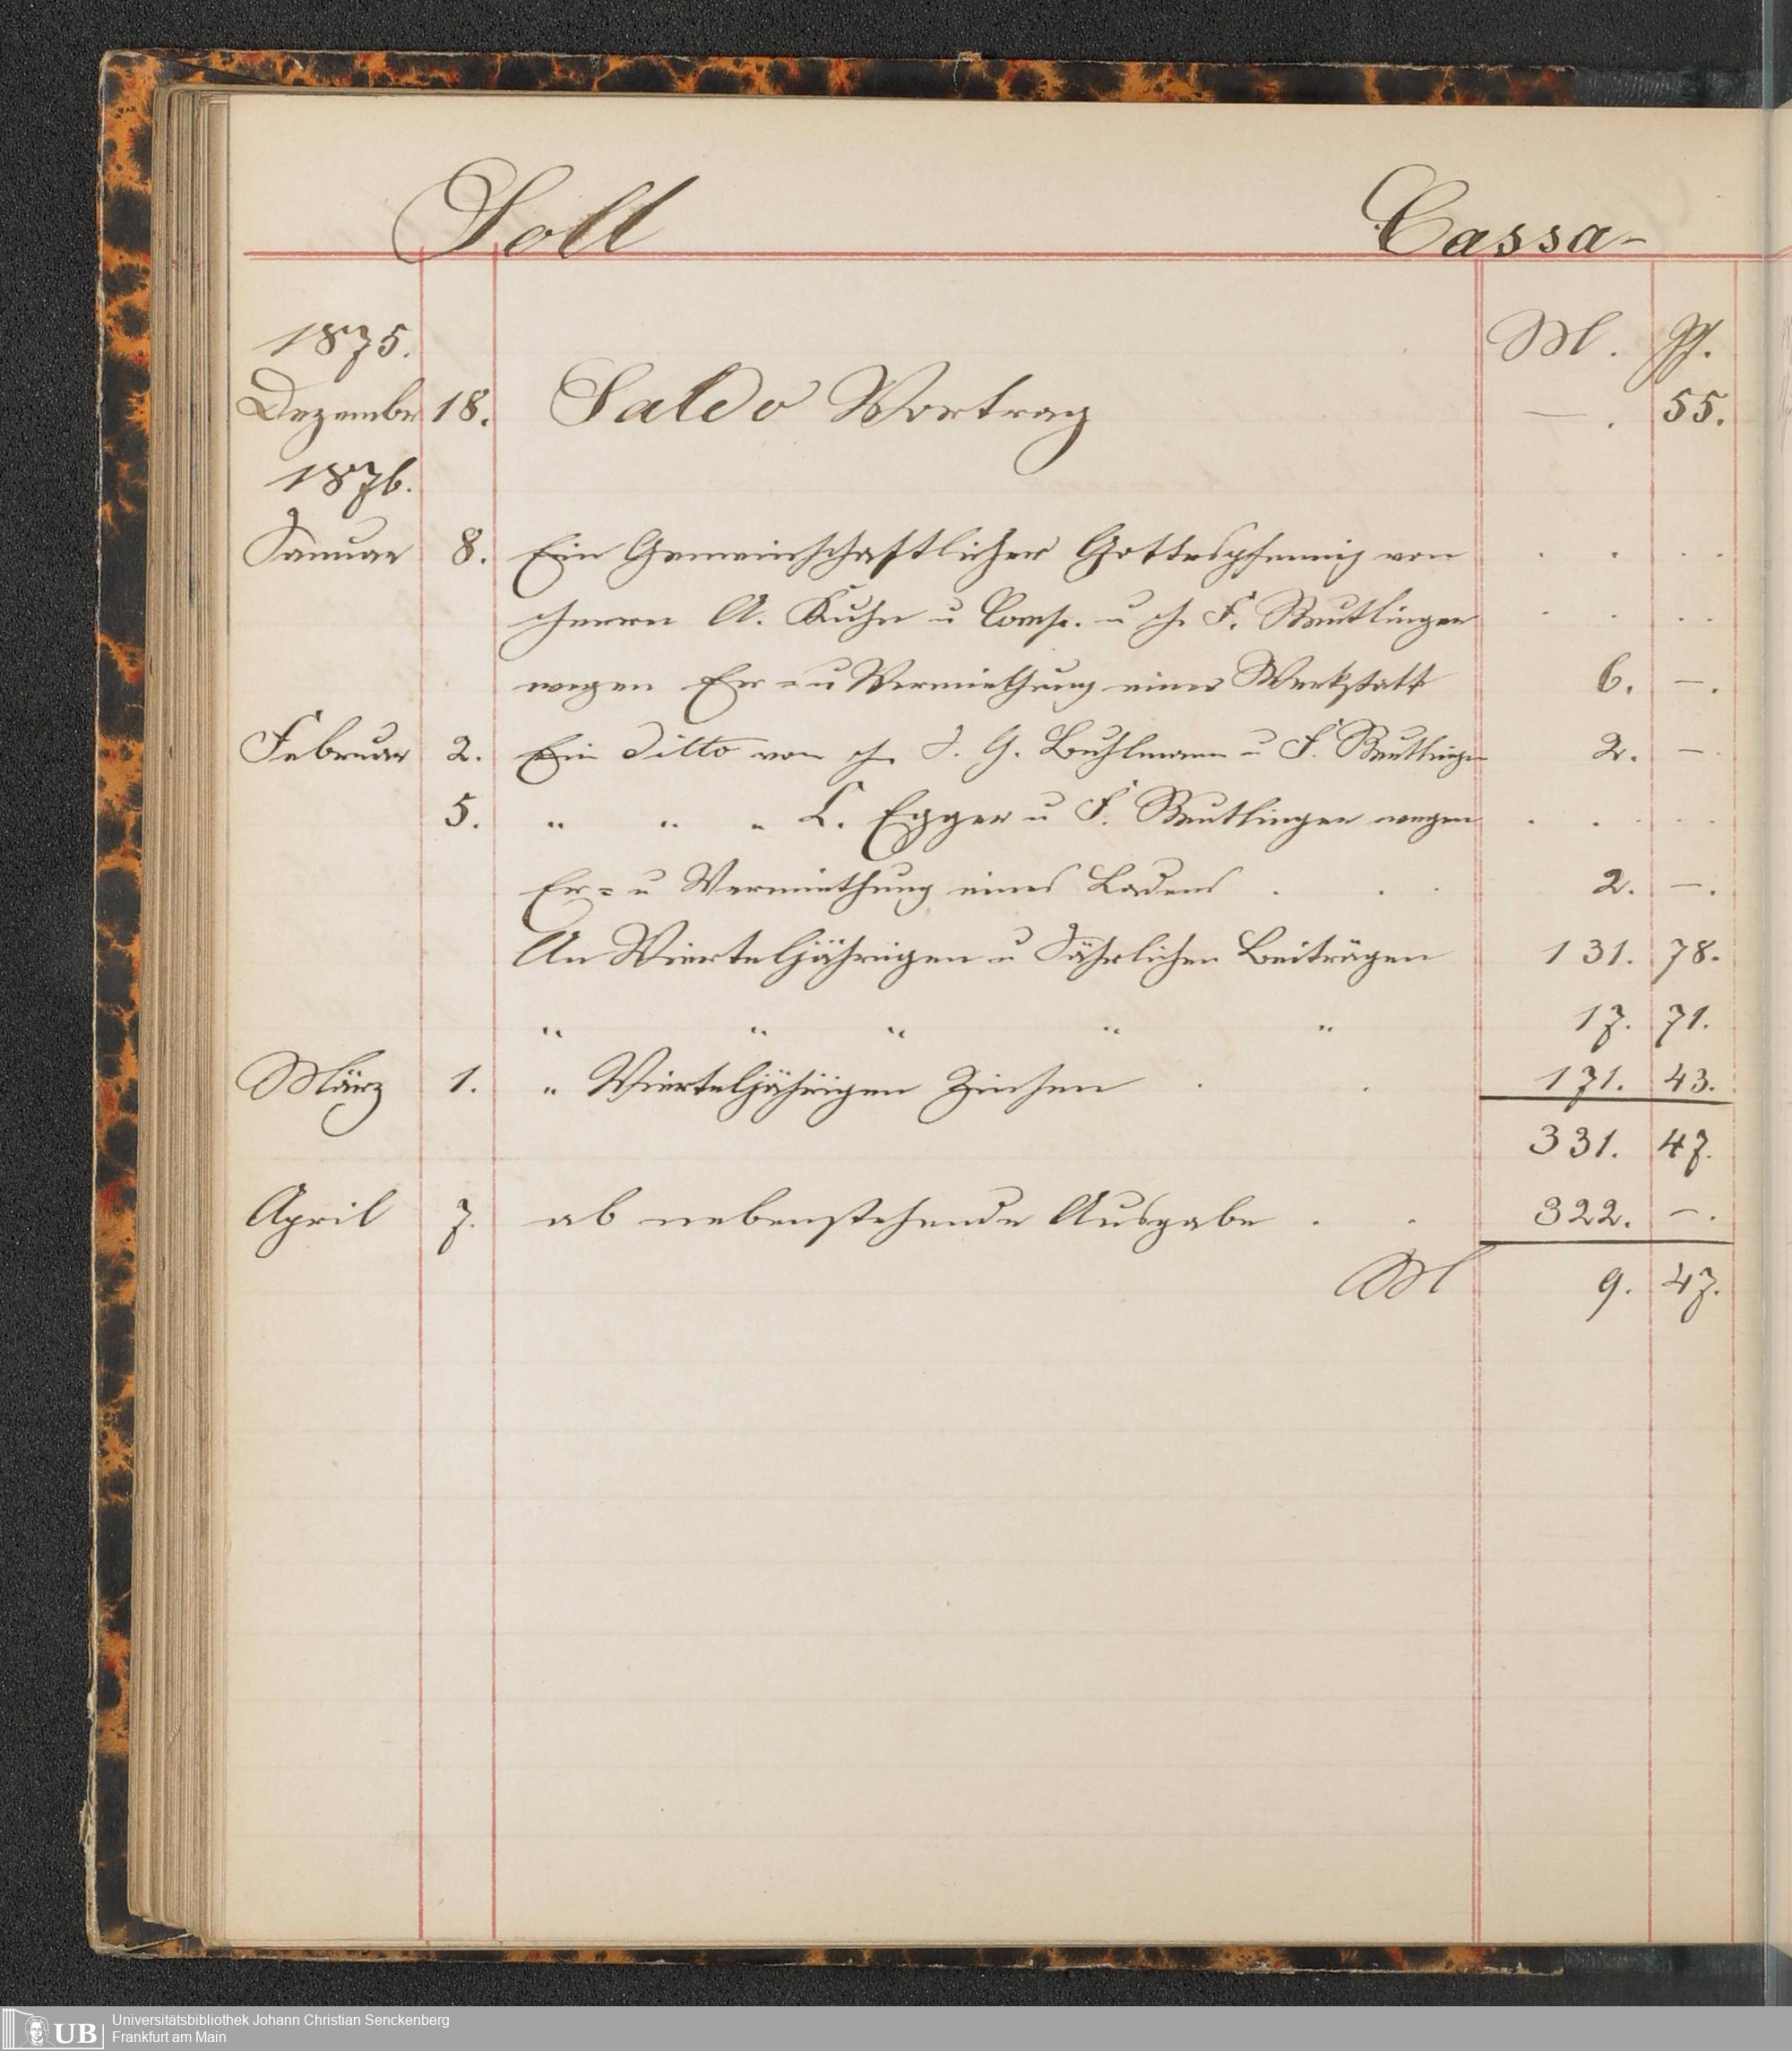 Soll Cassa-
1875. M. Pf.
Dezember 18. Saldo Vortrag —. 55.
1876.
Januar 8. Ein Gemeinschaftlicher Gottespfennig von
Herrn A. Kuhn u Comp. u H. F. Reutlinger
wegen Er- u Vermiethung einer Werkstatt 6. —.
Februar 2. Ein ditto von H. J. G. Buhlmann u F. Reutlinger 2. —
5. " " " L. Egger u F. Reutlinger wegen
Er- u Vermiethung eines Ladens . . . 2. —.
An Vierteljährigen u Jährlichen Beiträgen 131. 78.
" " " " " 17. 71.
März 1. " Vierteljährigen Zinsen . . 171. 43.
331. 47.
April 7. ab nebenstehende Ausgabe . . 322. —.
M 9. 47.
UB Universitätsbibliothek Johann Christian Senckenberg
Frankfurt am Main